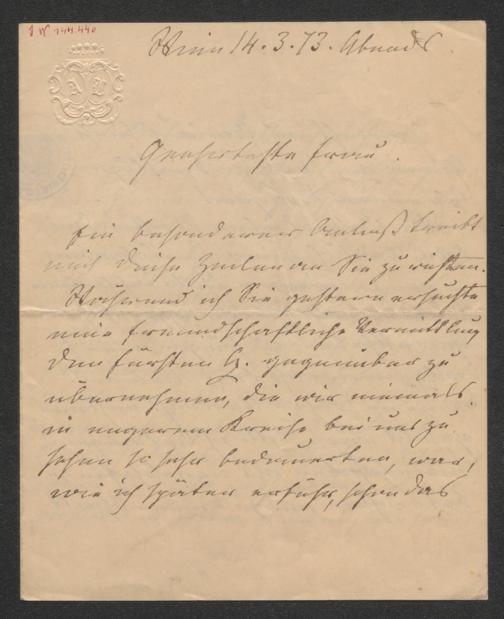 I N 144.440
Wien 14.3.73. Abends.
Geehrteste Frau.
Ein besonderer Anlaß treibt
mich diese Zeilen an Sie zu richten.
Während ich Sie gestern ersuchte
eine freundschaftliche Vermittlung
dem Fürsten gegenüber zu
übernehmen, die wir niemals
in engerem Kreise bei uns zu
sehen so sehr bedauerten, war,
wie ich später erfuhr, schon das